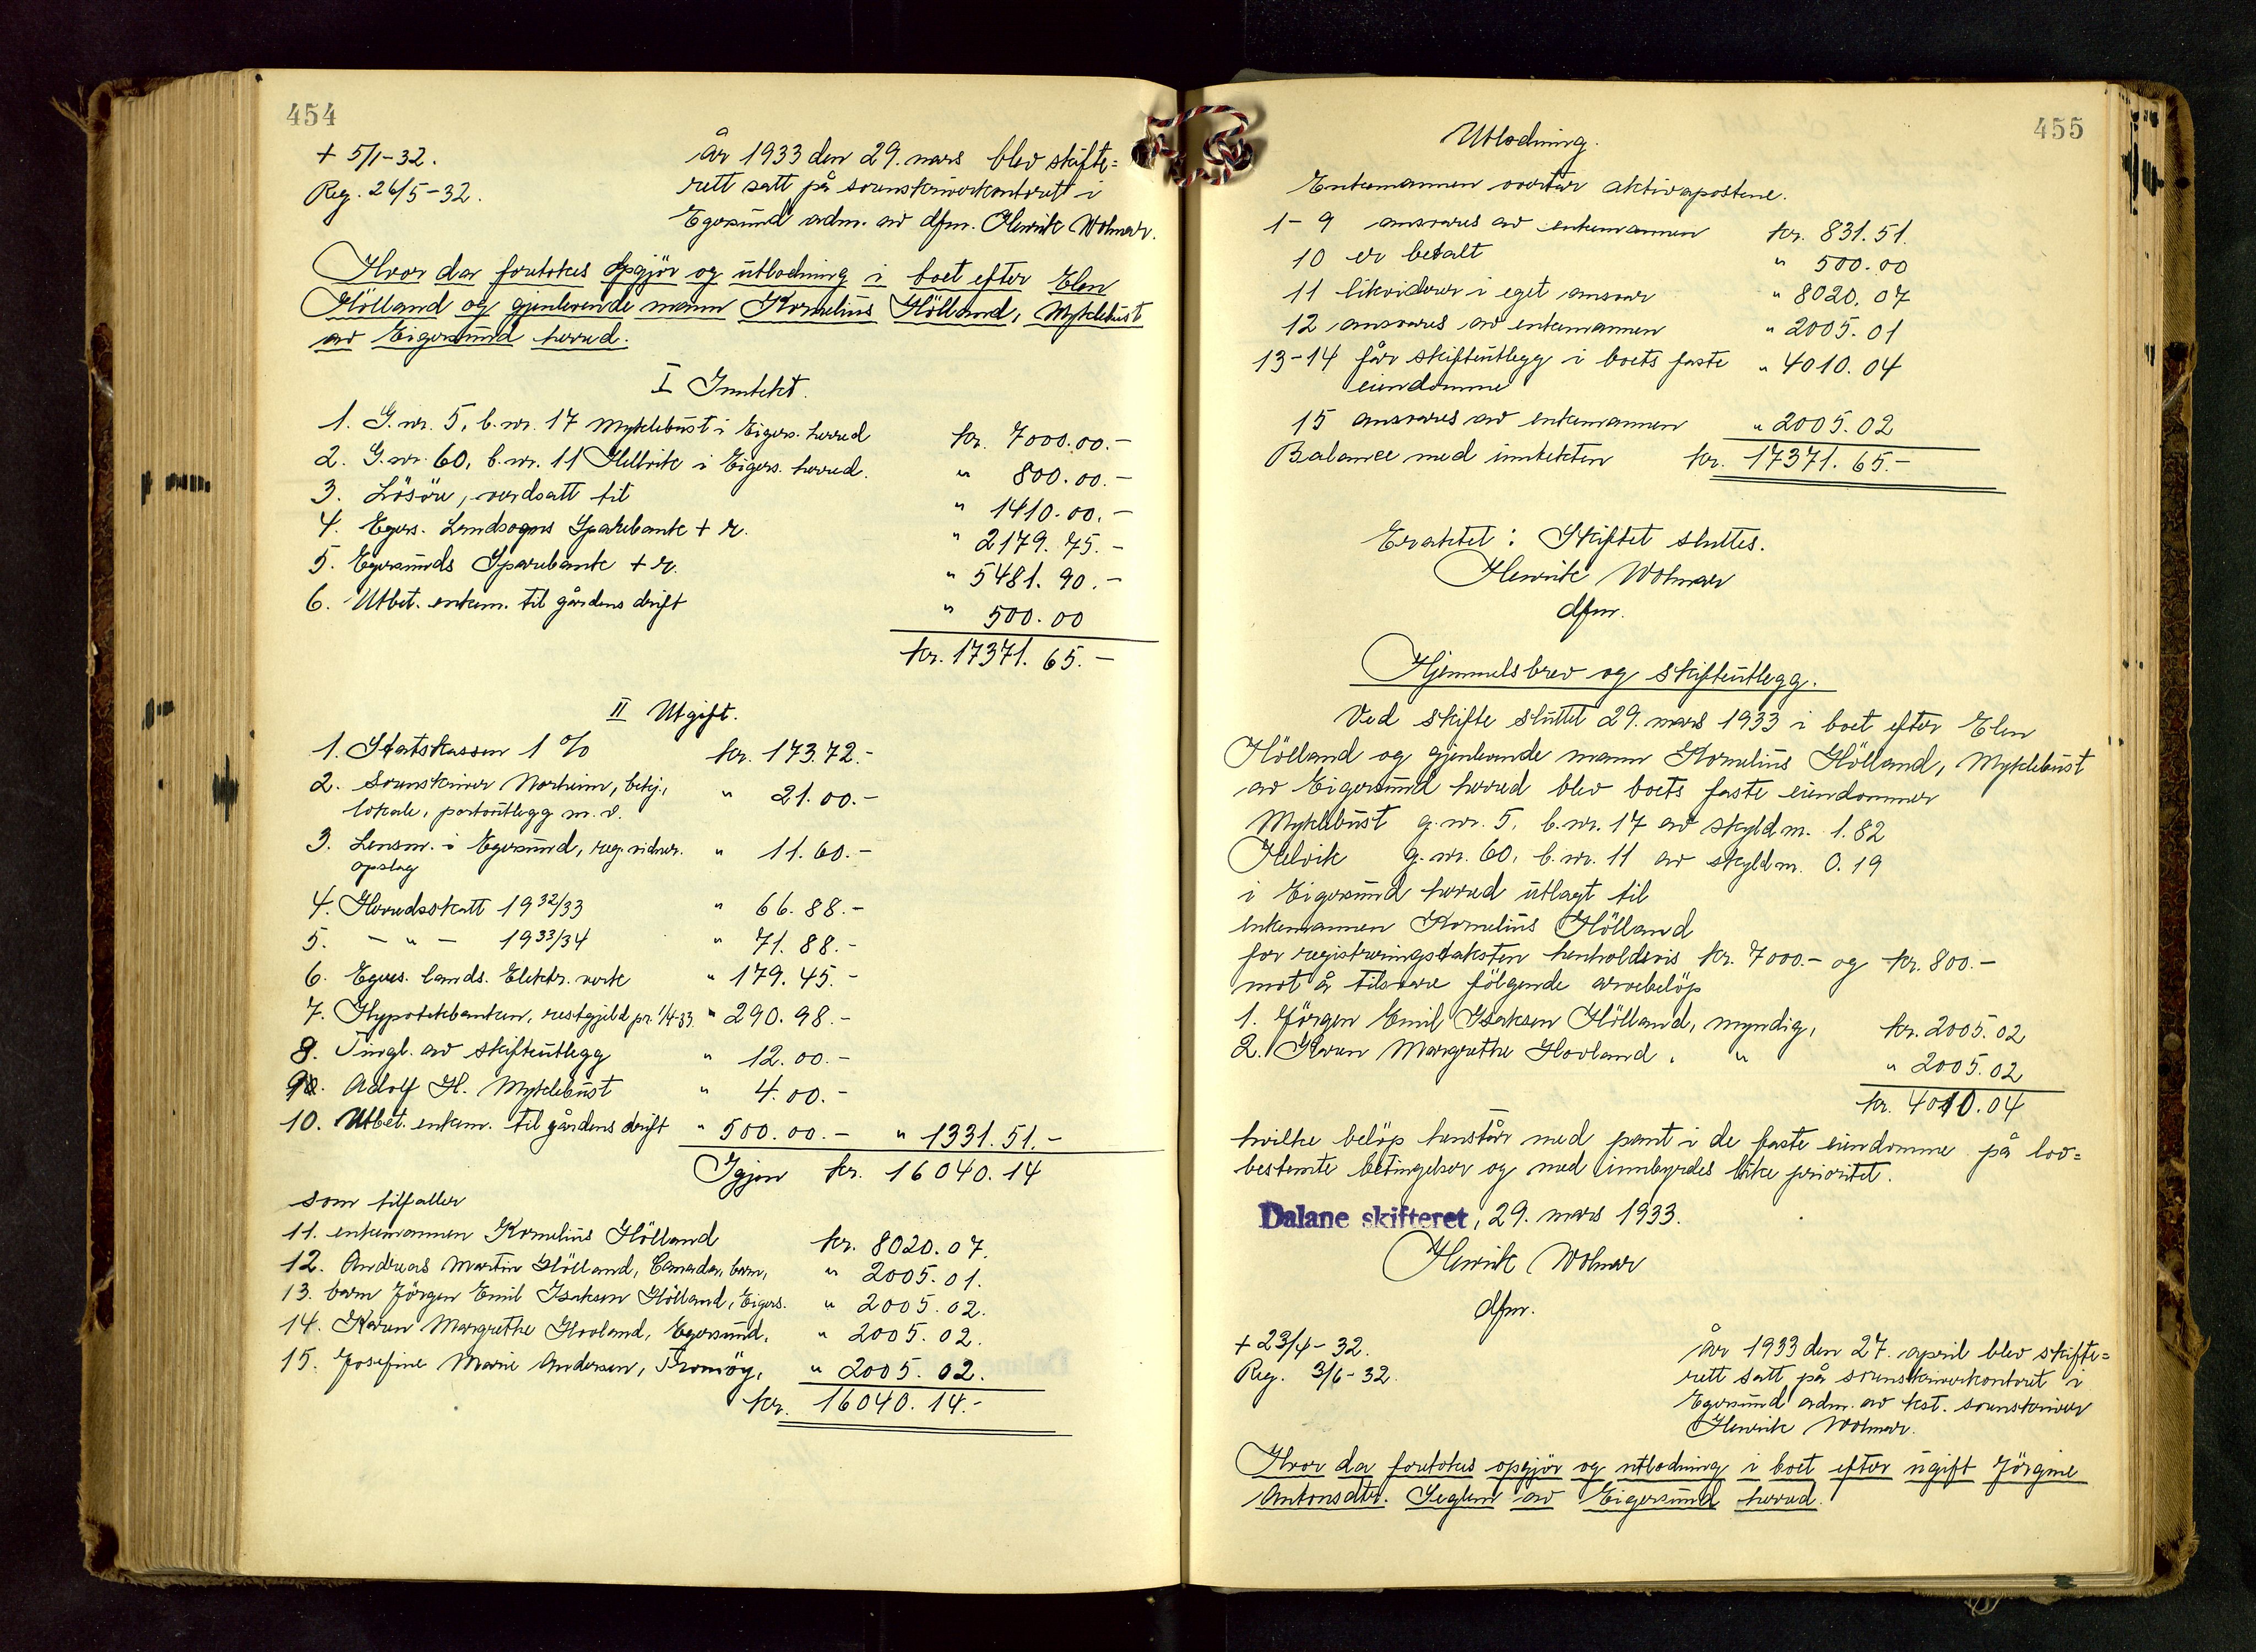 454
+ 5/1-32.
Reg. 26/5-32.
År 1933 den 29. mars blev skifte=
rett satt på sorenskriverkontoret i
Egersund adm. av dfm. Henrik Wolmar.
Hvor da foretokes opgjör og utlodning i boet efter Elen
Hölland og gjenlevende mann Kornelius Hölland, Myklebust
av Eigersund herred.
I Inntekt.
1. G. nr. 5, b. nr. 17 Myklebust i Eigers. herred kr. 7000.00.-
2. G. nr. 60, b. nr. 11 Hellvik i Eigers. herred. " 800.00.-
3. Lösöre, verdsatt til " 1410.00.-
4. Egers. Landsogns Sparebank + r. " 2179.75.-
5. Egersunds Sparebank + r. " 5481.90.-
6. Utbet. enkem. til gårdens drift " 500.00
kr. 17371.65.-
II Utgift.
1. Statskassen 1 % kr. 173.72.-
2. Sorenskriver Norheim, betj., " 21.00.-
lokale, portoutlegg m. v.
3. Lensm. i Egersund, reg. vidner. " 11.60.-
opslag
4. Herredsskatt 1932/33 " 66.88.-
5. - " - 1933/34 " 71.88.-
6. Egers. lands. Elektr. verk " 179.45.-
7. Hypotekbanken, restgjeld pr. 1/4-33. " 290.98.-
8. Tingl. av skifteutlegg " 12.00.-
9. Adolf H. Myklebust " 4.00.-
10. Utbet. enkem. til gårdens drift " 500.00.- " 1331.51.-
Igjen kr. 16040.14
som tilfaller
11. enkemannen Kornelius Hölland kr. 8020.07.
12. Andreas Martin Hölland, Canada, barn, " 2005.01.
13. barn Jörgen Emil Isaksen Hölland, Eigers. " 2005.02.
14. Karen Margrethe Hovland, Egersund, " 2005.02.
15. Josefine Marie Andersen, Tromöy, " 2005.02.
kr. 16040.14.-
455
Utlodning.
Enkemannen overtar aktivapostene.
1-9 ansvares av enkemannen kr. 831.51.
10 er betalt " 500.00
11 likviderer i eget ansvar " 8020.07
12 ansvares av enkemannen " 2005.01
13-14 får skifteutlegg i boets faste " 4010.04
eiendomme
15 ansvares av enkemannen " 2005.02
Balance med inntekten kr. 17371.65.-
Eraktet: Skiftet sluttes.
Henrik Wolmar
dfm.
Hjemmelsbrev og skifteutlegg.
Ved skifte sluttet 29. mars 1933 i boet efter Elen
Hölland og gjenlevende mann Kornelius Hölland, Myklebust
av Eigersund herred blev boets faste eiendommer
Myklebust g. nr. 5, b. nr. 17 av skyldm. 1.82
Helvik g. nr. 60, b. nr. 11 av skyldm. 0.19
i Eigersund herred utlagt til
enkemannen Kornelius Hölland
for registreringstaksten henholdsvis kr. 7000.- og kr. 800.-
mot å tilsvare fölgende arvebelöp
1. Jörgen Emil Isaksen Hölland, myndig, kr. 2005.02
2. Karen Margrethe Hovland, " " 2005.02
kr. 4010.04
hvilke belöp henstår med pant i de faste eiendomme på lov=
bestemte betingelser og med innbyrdes like prioritet.
Dalane skifteret, 29. mars 1933.
Henrik Wolmar
dfm.
+ 23/4-32.
Reg. 3/6-32.
År 1933 den 27. april blev skifte=
rett satt på sorenskriverkontoret i
Egersund adm. av kst. sorenskriver
Henrik Wolmar.
Hvor da foretokes opgjör og utlodning i boet efter ugift Jörgine
Antonsdtr. Seglem av Eigersund herred.